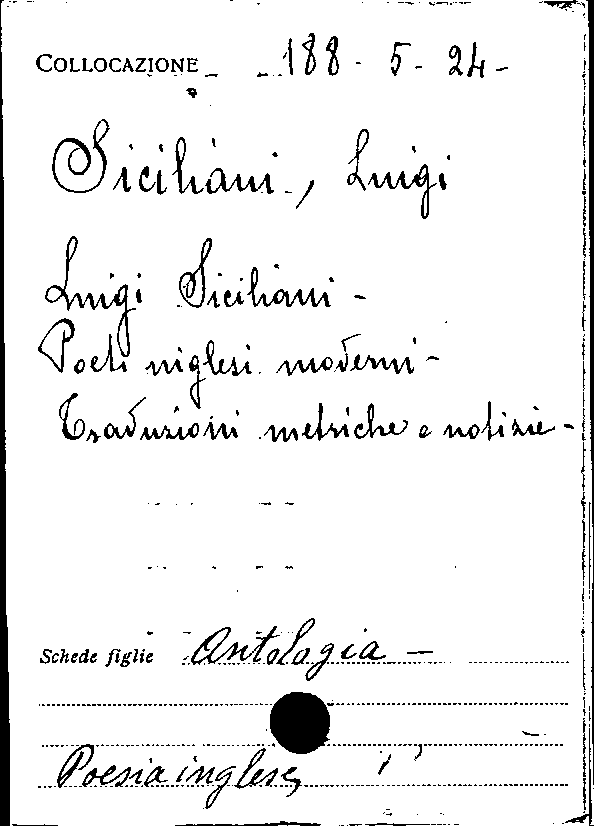 COLLOCAZIONE 188 - 5 - 24 -
Siciliani, Luigi
Luigi Siciliani -
Poeti inglesi moderni -
Traduzioni metriche e notizie -
Schede figlie Antologia -
Poesia inglese